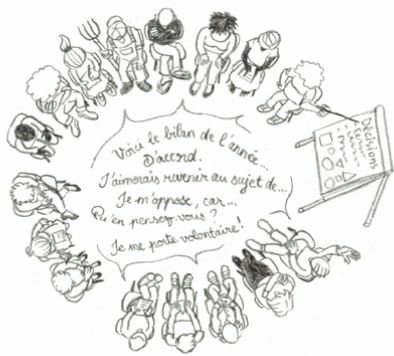 Voici le bilan de l'année...
D'accord.
J'aimerais revenir au sujet de...
Je m'oppose, car...
Qu'en pensez-vous ?
Je me porte volontaire!
Décisions